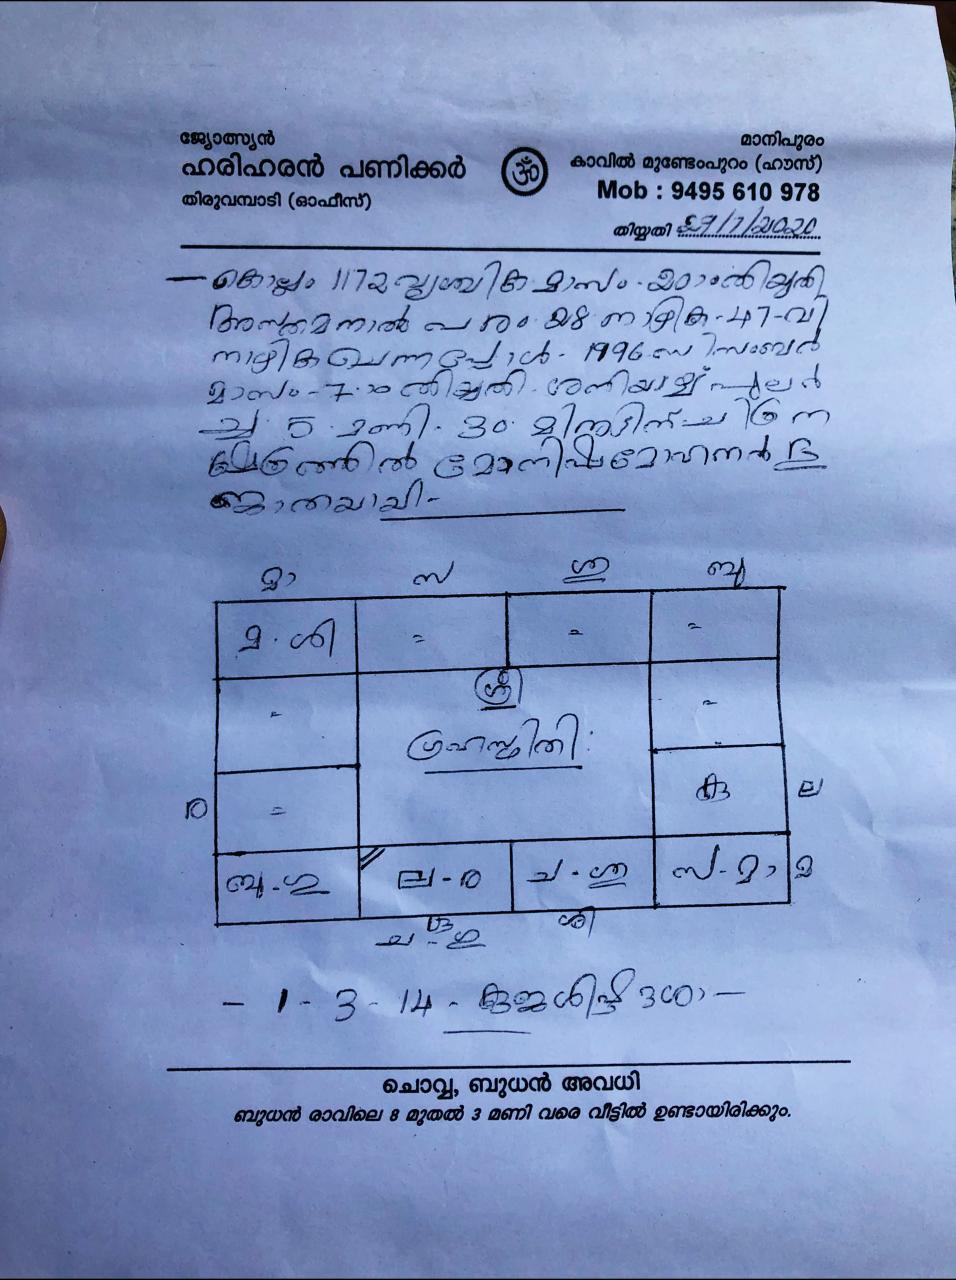 ജ്യോത്സ്യൻ
ഹരിഹരൻ പണിക്കർ
തിരുവമ്പാടി (ഓഫീസ്)
ॐ
മാനിപുരം
കാവിൽ മുണ്ടേംപുറം (ഹൗസ്)
Mob : 9495 610 978
തിയ്യതി /7/2020
— കൊല്ലം 1172 വൃശ്ചിക മാസം തിയ്യതി
അസ്തമനാൽ പരം നാഴിക - 47 - വി
നാഴിക ചെന്നപ്പോൾ - 1996 ഡിസംബർ
മാസം - 7 -ാം തിയ്യതി ശനിയാഴ്ച പുലർ
ച്ച 5 മണി - 30 മിനുട്ടിന് ചിത്ര ന
ക്ഷത്രത്തിൽ
ജാതയായി -
മാ സ ശു ബു
മ - ശി = = =
= =
ശ്രീ
ഗ്രഹസ്ഥിതി :
ര = കു ല
ബു - ഗു ല - ര ച - ശു സ - മാ മ
കു ശി
ച - ഗു
- 1 - 3 - 14 - കുജശിഷ്ട ദശാ —
ചൊവ്വ, ബുധൻ അവധി
ബുധൻ രാവിലെ 8 മുതൽ 3 മണി വരെ വീട്ടിൽ ഉണ്ടായിരിക്കും.